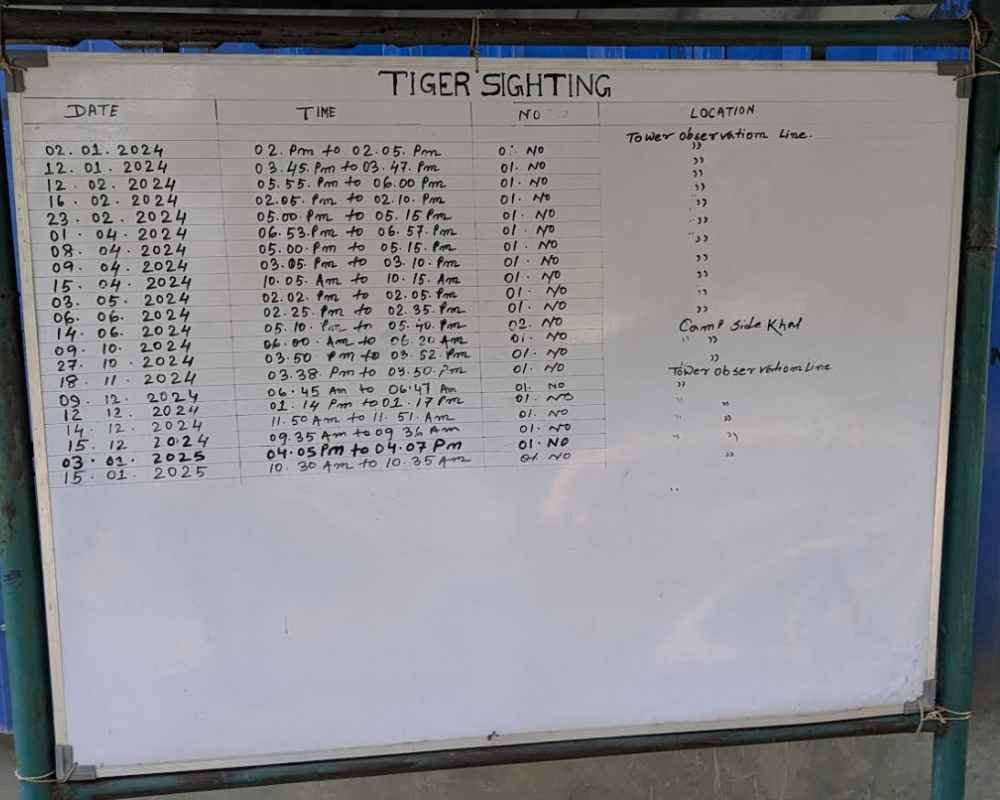 TIGER SIGHTING
DATE TIME NO LOCATION
02.01.2024 02.Pm to 02.05.Pm 01. NO Tower observation Line.
12.01.2024 03.45.Pm to 03.47.Pm 01. NO ”
12.02.2024 05.55.Pm to 06.00 Pm 01. NO ”
16.02.2024 02.05.Pm to 02.10.Pm 01. NO ”
23.02.2024 05.00.Pm to 05.15 Pm 01. NO ”
01.04.2024 06.53.Pm to 06.57.Pm 01. NO ”
08.04.2024 05.00.Pm to 05.15.Pm 01. NO ”
09.04.2024 03.05.Pm to 03.10.Pm 01. NO ”
15.04.2024 10.05.Am to 10.15.Am 01. NO ”
03.05.2024 02.02.Pm to 02.05.Pm 01. NO ”
06.06.2024 02.25.Pm to 02.35.Pm 01. NO ”
14.06.2024 05.10.Pm to 05.40.Pm 02. NO ”
09.10.2024 06.00.Am to 06.20 Am 01. NO Camp side Khal
27.10.2024 03.50 Pm to 03.52.Pm 01. NO ” ”
18.11.2024 03.38.Pm to 03.50.Pm 01. NO ”
09.12.2024 06.45 Am to 06.47 Am 01. NO Tower observation Line
12.12.2024 01.14 Pm to 01.17 Pm 01. NO ”
14.12.2024 11.50 Am to 11.51.Am 01. NO ” ”
15.12.2024 09.35 Am to 09 36 Am 01. NO ” ”
03.01.2025 04.05 Pm to 04.07 Pm 01. NO ” ”
15.01.2025 10.30 Am to 10.35 Am 01. NO ”